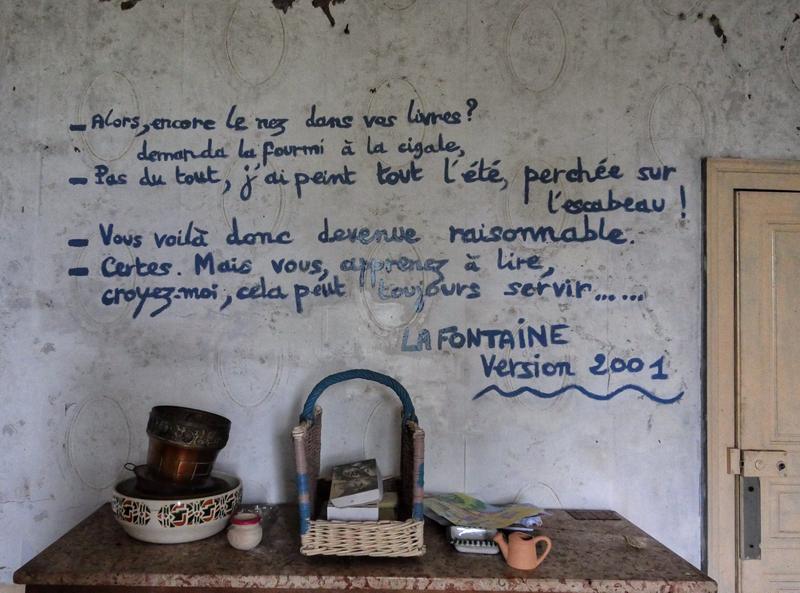 - Alors, encore le nez dans vos livres?
demanda la fourmi à la cigale,
- Pas du tout, j'ai peint tout l'été, perchée sur
l'escabeau !
- Vous voilà donc devenue raisonnable.
- Certes. Mais vous, apprenez à lire,
croyez-moi, cela peut toujours servir......
LA FONTAINE
Version 2001